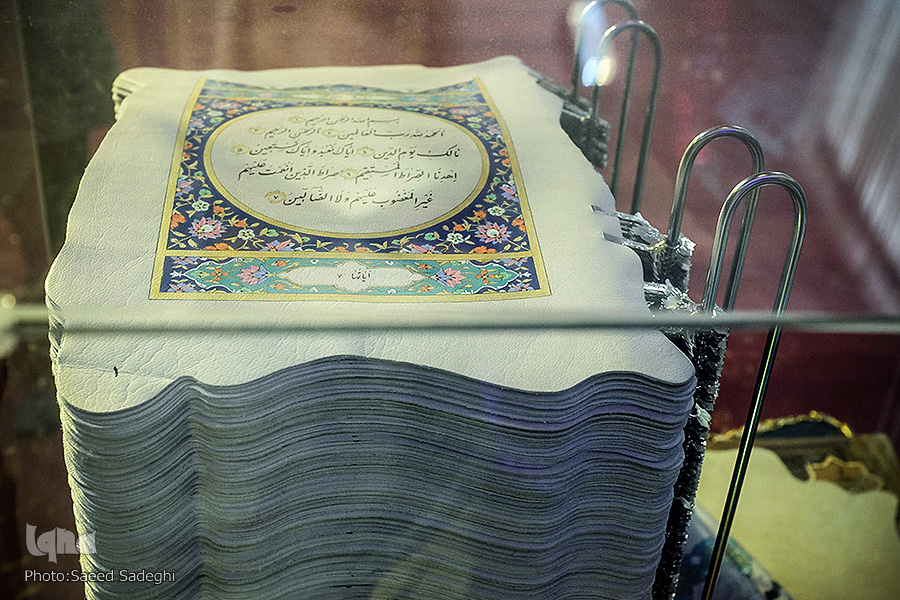 بِسْمِ اللهِ الرَّحْمٰنِ الرَّحِيمِ ۱
اَلْحَمْدُ لِلّٰهِ رَبِّ الْعَالَمِينَ ۲ اَلرَّحْمٰنِ الرَّحِيمِ ۳
مَالِكِ يَوْمِ الدِّينِ ۴ اِيَّاكَ نَعْبُدُ وَاِيَّاكَ نَسْتَعِينُ ۵
اِهْدِنَا الصِّرَاطَ الْمُسْتَقِيمَ ۶ صِرَاطَ الَّذِينَ اَنْعَمْتَ عَلَيْهِمْ
غَيْرِ الْمَغْضُوبِ عَلَيْهِمْ وَلَا الضَّالِّينَ ۷
آیاتها ۷
Iqna
Photo:Saeed Sadeghi